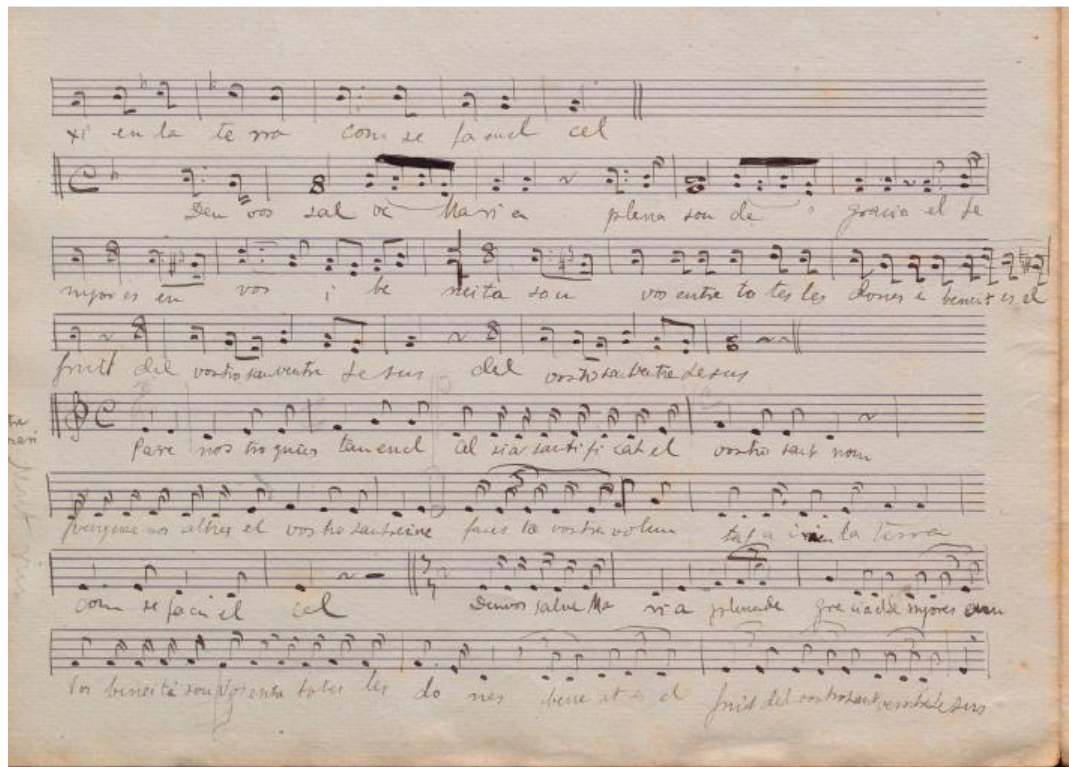 xi en la te rra com se fa enel cel
Deu vos sal ve Maria plena sou de gracia el Se
nyor es en vos i be neita sou vos entre to tes les dones i beneit es el
fruit del vostro santventre Jesus del vostro santventre Jesus
Pare nos tro quies tau enel cel sia santi fi cat el vostro sant nom
vengue nos altres el vostro sant reine fasis la vostra volun tat a i en la tierra
com se fa en el cel Deuvos salve Ma ri a plena de gra cia el Se nyor es en
Vos beneita sou Vos entre totes les do nes bene it es el fruit del vostro sant ventre Jesus